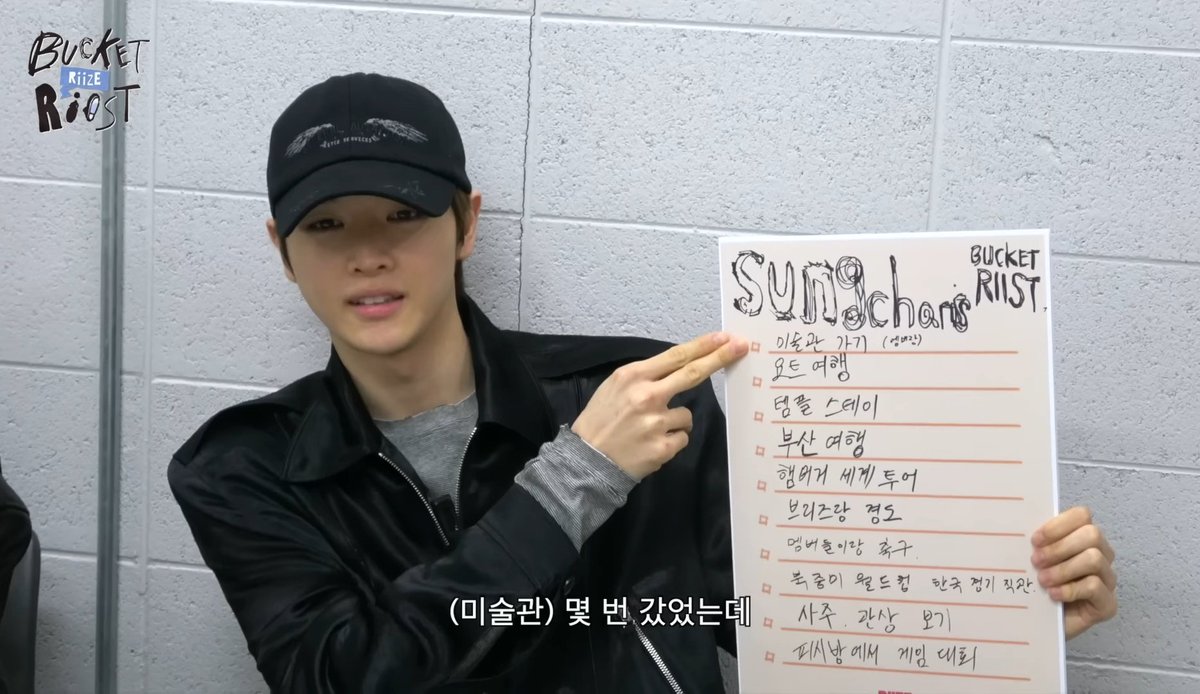 BUCKET
RIIZE
RIIST
SUNGchan's
BUCKET
RIIST.
미술관 가기 (멤버랑)
요트 여행
템플 스테이
부산 여행
햄버거 세계 투어
브리즈랑 경도
멤버들이랑 축구.
북중미 월드컵 한국 경기 직관.
사주. 관상 보기
피시방에서 게임 대회
(미술관) 몇 번 갔었는데